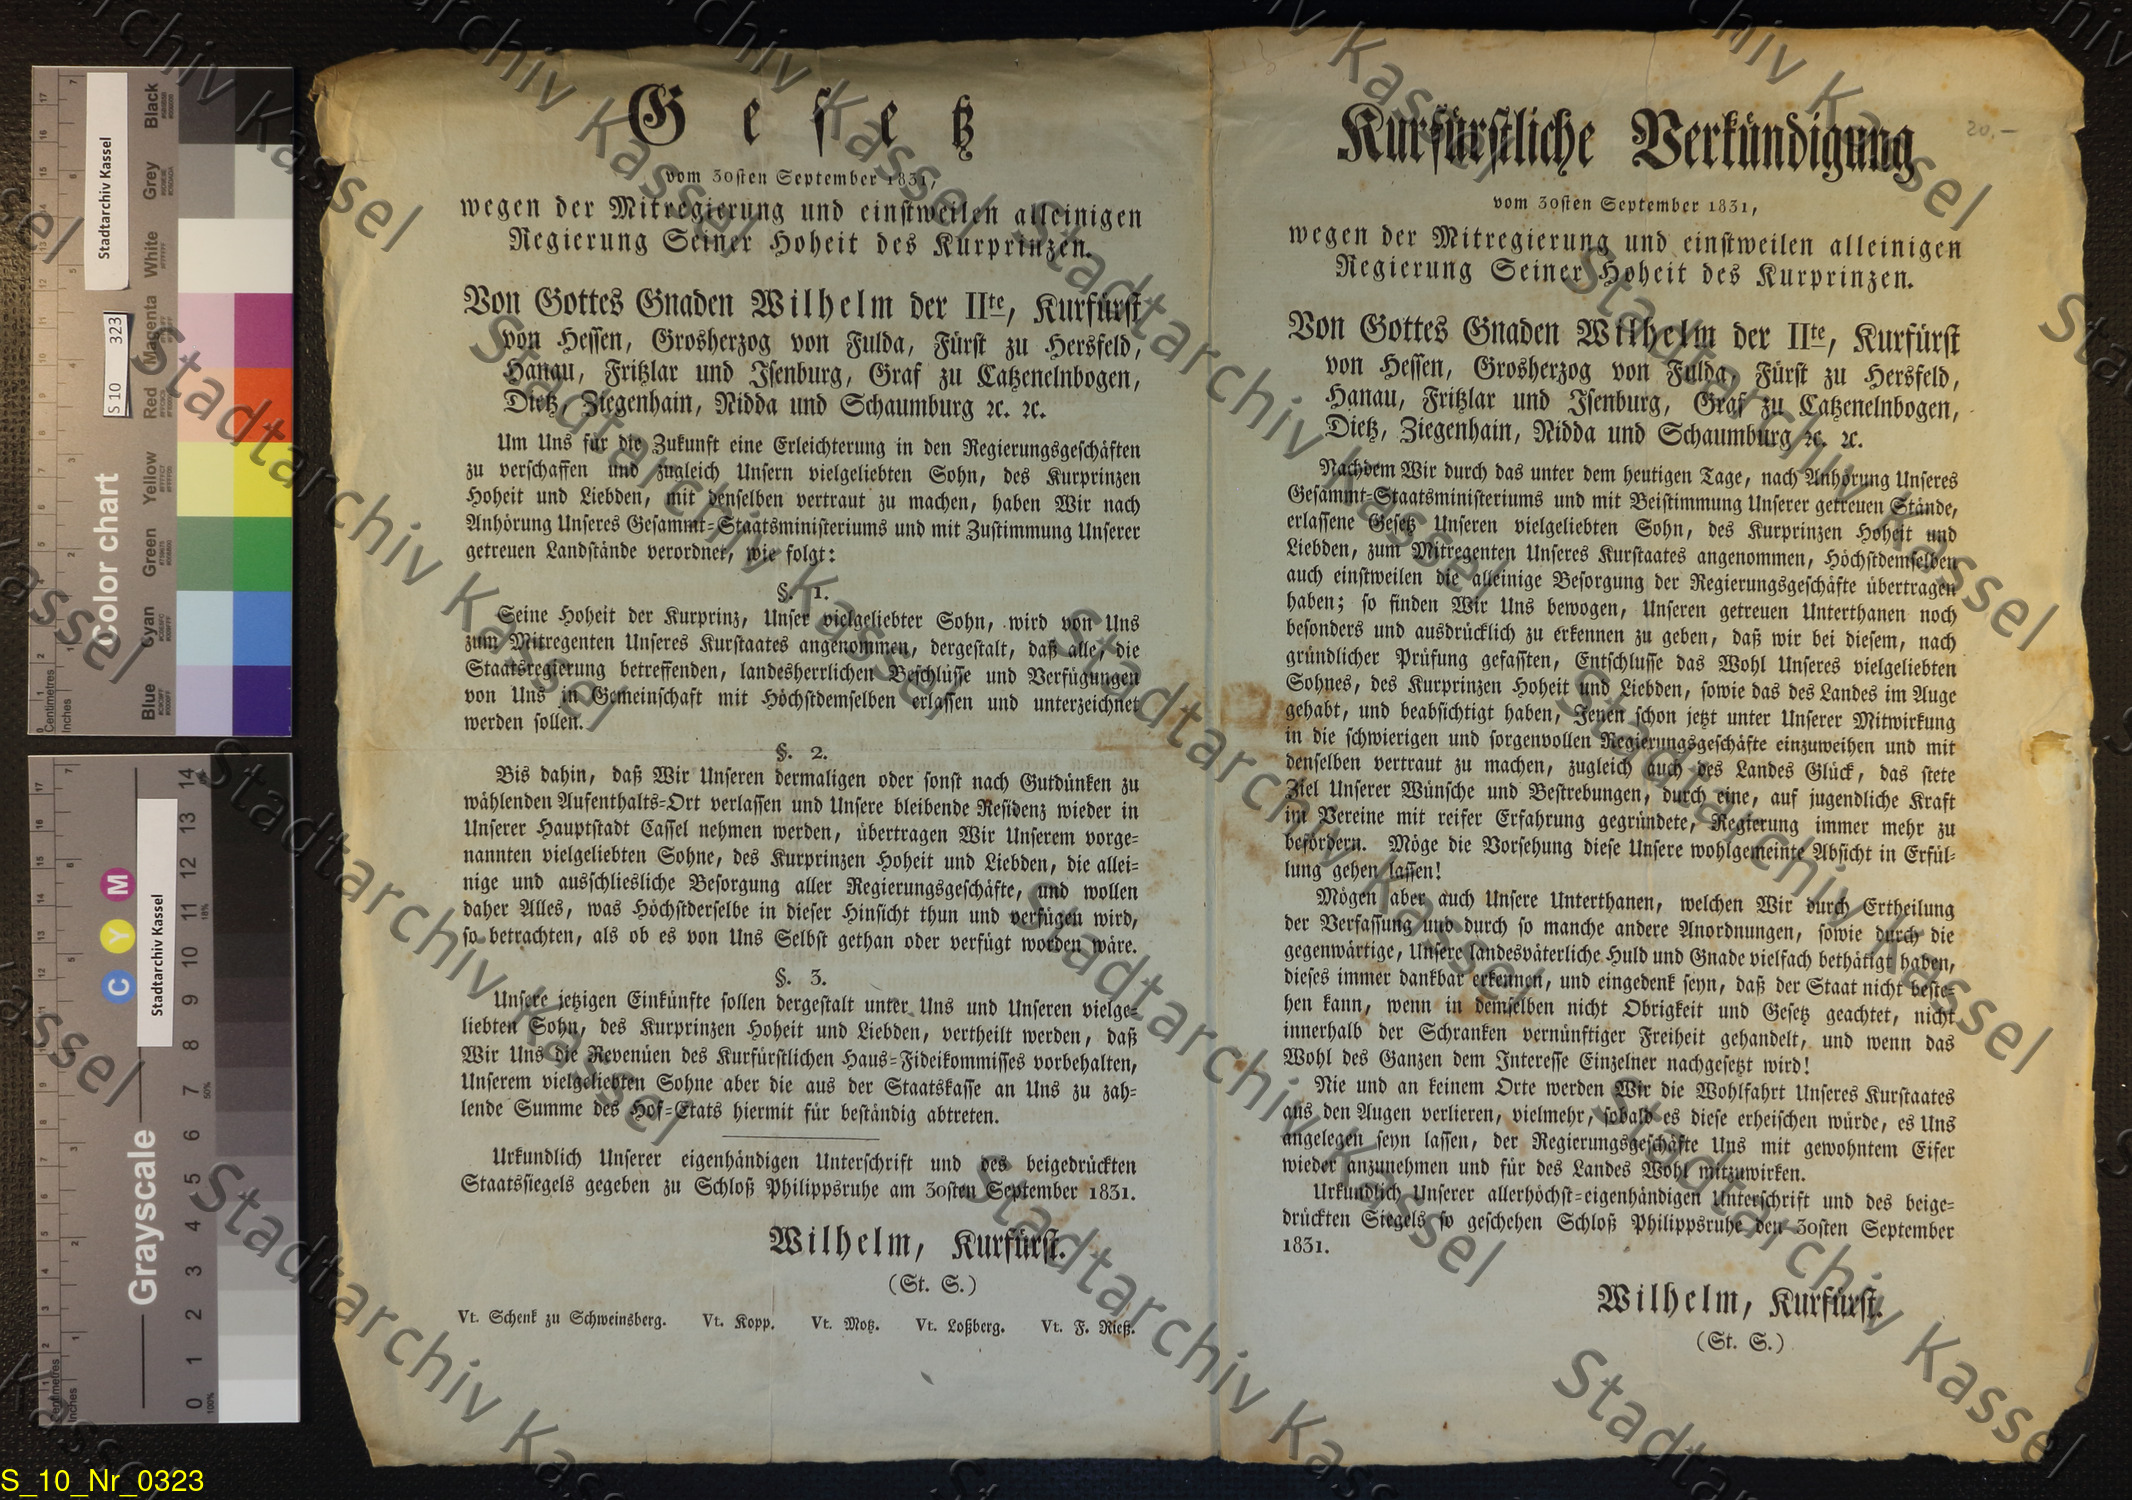 Gesetz
vom 30sten September 1831,
wegen der Mitregierung und einstweilen alleinigen
Regierung Seiner Hoheit des Kurprinzen.
Von Gottes Gnaden Wilhelm der IIte, Kurfürst
von Hessen, Grosherzog von Fulda, Fürst zu Hersfeld,
Hanau, Fritzlar und Isenburg, Graf zu Catzenelnbogen,
Dietz, Ziegenhain, Nidda und Schaumburg ꝛc. ꝛc.
Um Uns für die Zukunft eine Erleichterung in den Regierungsgeschäften
zu verschaffen und zugleich Unsern vielgeliebten Sohn, des Kurprinzen
Hoheit und Liebden, mit denselben vertraut zu machen, haben Wir nach
Anhörung Unseres Gesammt-Staatsministeriums und mit Zustimmung Unserer
getreuen Landstände verordnet, wie folgt:
§. 1.
Seine Hoheit der Kurprinz, Unser vielgeliebter Sohn, wird von Uns
zum Mitregenten Unseres Kurstaates angenommen, dergestalt, daß alle, die
Staatsregierung betreffenden, landesherrlichen Beschlüsse und Verfügungen
von Uns in Gemeinschaft mit Höchstdemselben erlassen und unterzeichnet
werden sollen.
§. 2.
Bis dahin, daß Wir Unseren dermaligen oder sonst nach Gutdünken zu
wählenden Aufenthalts-Ort verlassen und Unsere bleibende Residenz wieder in
Unserer Hauptstadt Cassel nehmen werden, übertragen Wir Unserem vorge-
nannten vielgeliebten Sohne, des Kurprinzen Hoheit und Liebden, die allei-
nige und ausschliesliche Besorgung aller Regierungsgeschäfte, und wollen
daher Alles, was Höchstderselbe in dieser Hinsicht thun und verfügen wird,
so betrachten, als ob es von Uns Selbst gethan oder verfügt worden wäre.
§. 3.
Unsere jetzigen Einkünfte sollen dergestalt unter Uns und Unseren vielge-
liebten Sohn, des Kurprinzen Hoheit und Liebden, vertheilt werden, daß
Wir Uns die Revenüen des Kurfürstlichen Haus-Fideikommisses vorbehalten,
Unserem vielgeliebten Sohne aber die aus der Staatskasse an Uns zu zah-
lende Summe des Hof-Etats hiermit für beständig abtreten.
Urkundlich Unserer eigenhändigen Unterschrift und des beigedrückten
Staatssiegels gegeben zu Schloß Philippsruhe am 30sten September 1831.
Wilhelm, Kurfürst.
(St. S.)
Vt. Schenk zu Schweinsberg. Vt. Kopp. Vt. Motz. Vt. Loßberg. Vt. F. Rieß.
Kurfürstliche Verkündigung
20.—
vom 30sten September 1831,
wegen der Mitregierung und einstweilen alleinigen
Regierung Seiner Hoheit des Kurprinzen.
Von Gottes Gnaden Wilhelm der IIte, Kurfürst
von Hessen, Grosherzog von Fulda, Fürst zu Hersfeld,
Hanau, Fritzlar und Isenburg, Graf zu Catzenelnbogen,
Dietz, Ziegenhain, Nidda und Schaumburg ꝛc. ꝛc.
Nachdem Wir durch das unter dem heutigen Tage, nach Anhörung Unseres
Gesammt-Staatsministeriums und mit Beistimmung Unserer getreuen Stände,
erlassene Gesetz Unseren vielgeliebten Sohn, des Kurprinzen Hoheit und
Liebden, zum Mitregenten Unseres Kurstaates angenommen, Höchstdemselben
auch einstweilen die alleinige Besorgung der Regierungsgeschäfte übertragen
haben; so finden Wir Uns bewogen, Unseren getreuen Unterthanen noch
besonders und ausdrücklich zu erkennen zu geben, daß wir bei diesem, nach
gründlicher Prüfung gefassten, Entschlusse das Wohl Unseres vielgeliebten
Sohnes, des Kurprinzen Hoheit und Liebden, sowie das des Landes im Auge
gehabt, und beabsichtigt haben, Jenen schon jetzt unter Unserer Mitwirkung
in die schwierigen und sorgenvollen Regierungsgeschäfte einzuweihen und mit
denselben vertraut zu machen, zugleich auch des Landes Glück, das stete
Ziel Unserer Wünsche und Bestrebungen, durch eine, auf jugendliche Kraft
im Vereine mit reifer Erfahrung gegründete, Regierung immer mehr zu
befördern. Möge die Vorsehung diese Unsere wohlgemeinte Absicht in Erfül-
lung gehen lassen!
Mögen aber auch Unsere Unterthanen, welchen Wir durch Ertheilung
der Verfassung und durch so manche andere Anordnungen, sowie durch die
gegenwärtige, Unsere landesväterliche Huld und Gnade vielfach bethätigt haben,
dieses immer dankbar erkennen, und eingedenk seyn, daß der Staat nicht beste-
hen kann, wenn in demselben nicht Obrigkeit und Gesetz geachtet, nicht
innerhalb der Schranken vernünftiger Freiheit gehandelt, und wenn das
Wohl des Ganzen dem Interesse Einzelner nachgesetzt wird!
Nie und an keinem Orte werden Wir die Wohlfahrt Unseres Kurstaates
aus den Augen verlieren, vielmehr, sobald es diese erheischen würde, es Uns
angelegen seyn lassen, der Regierungsgeschäfte Uns mit gewohntem Eifer
wieder anzunehmen und für des Landes Wohl mitzuwirken.
Urkundlich Unserer allerhöchst-eigenhändigen Unterschrift und des beige-
drückten Siegels so geschehen Schloß Philippsruhe den 30sten September
1831.
Wilhelm, Kurfürst.
(St. S.)
Stadtarchiv Kassel
S 10 323
Color chart
Blue Cyan Green Yellow Red Magenta White Grey Black
Centimetres
Inches
Stadtarchiv Kassel
Grayscale
C Y M
0 1 2 3 4 5 6 7 8 9 10 11 12 13 14
Centimetres
Inches
S_10_Nr_0323